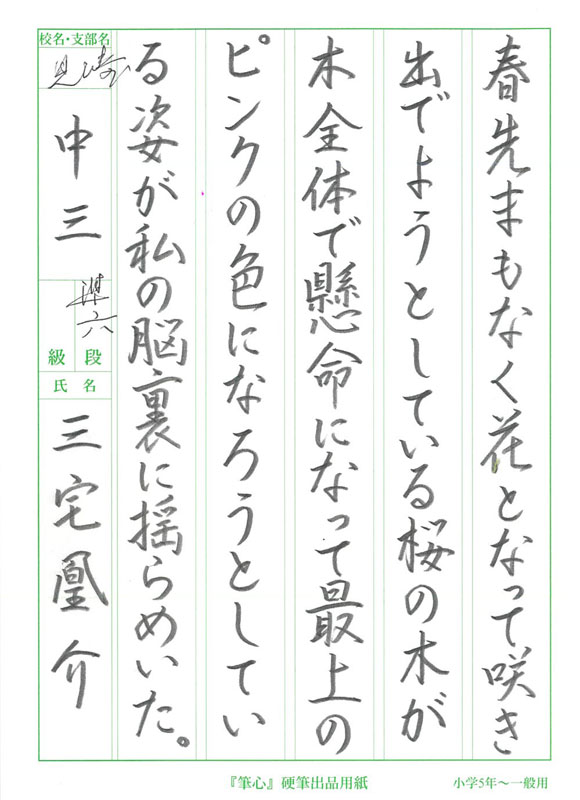 春先まもなく花となって咲き
出でようとしている桜の木が
木全体で懸命になって最上の
ピンクの色になろうとしてい
る姿が私の脳裏に揺らめいた。
校名・支部名
中三
準六
級 段
氏 名
三宅凰介
『筆心』硬筆出品用紙
小学5年〜一般用